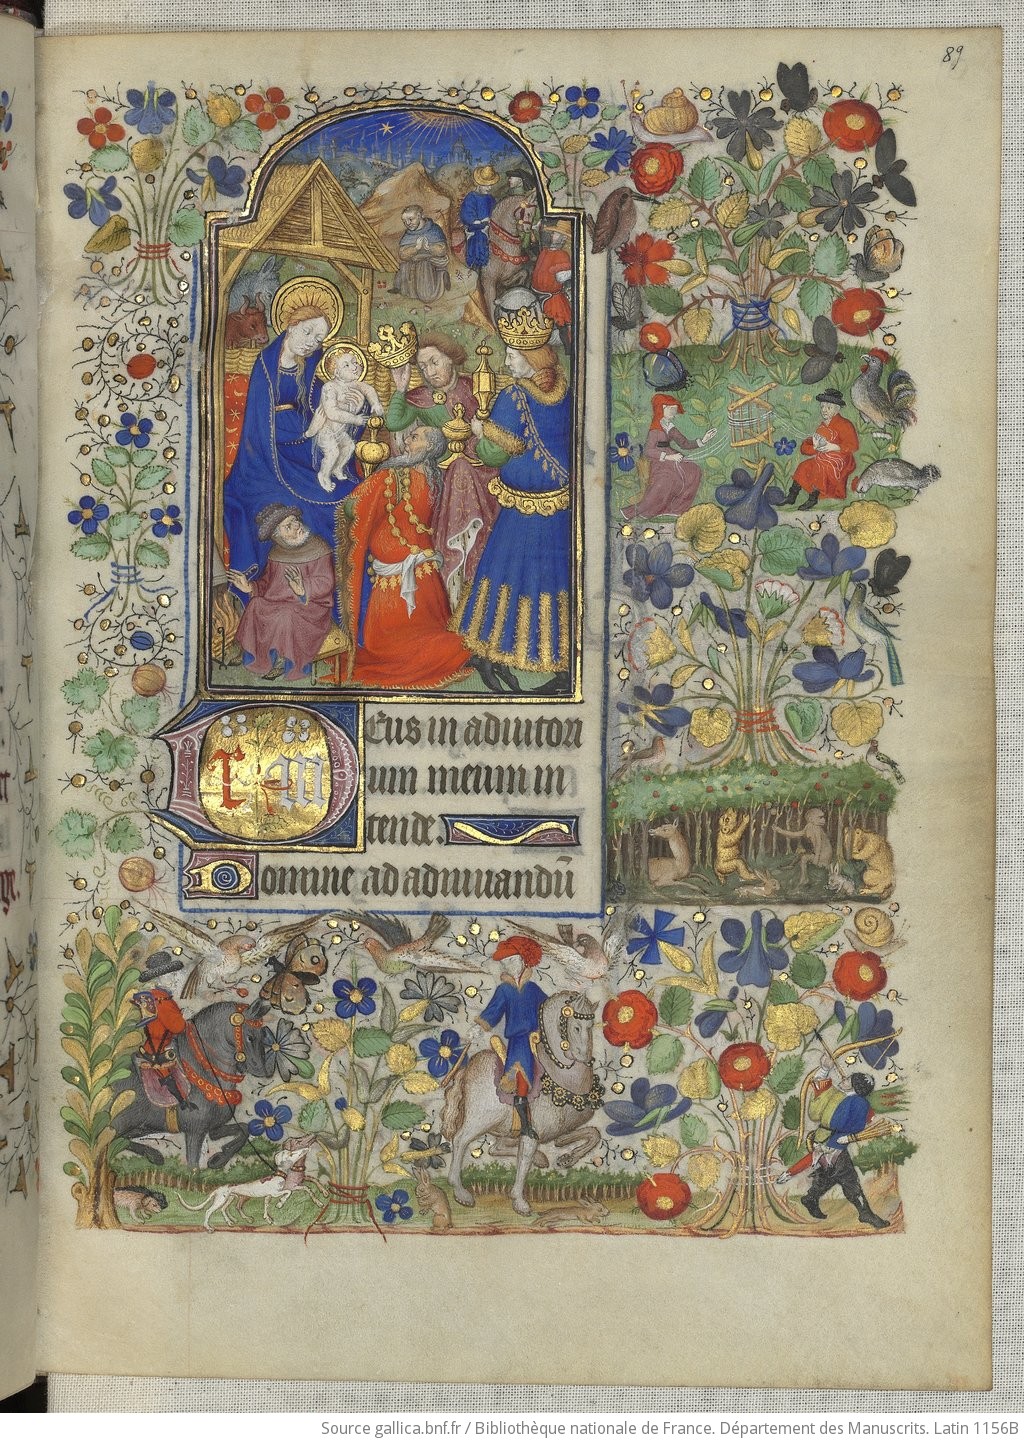 89
Deus in adiutori
um meum in
tende.
Domine ad adiuuandū
Source gallica.bnf.fr / Bibliothèque nationale de France. Département des Manuscrits. Latin 1156B